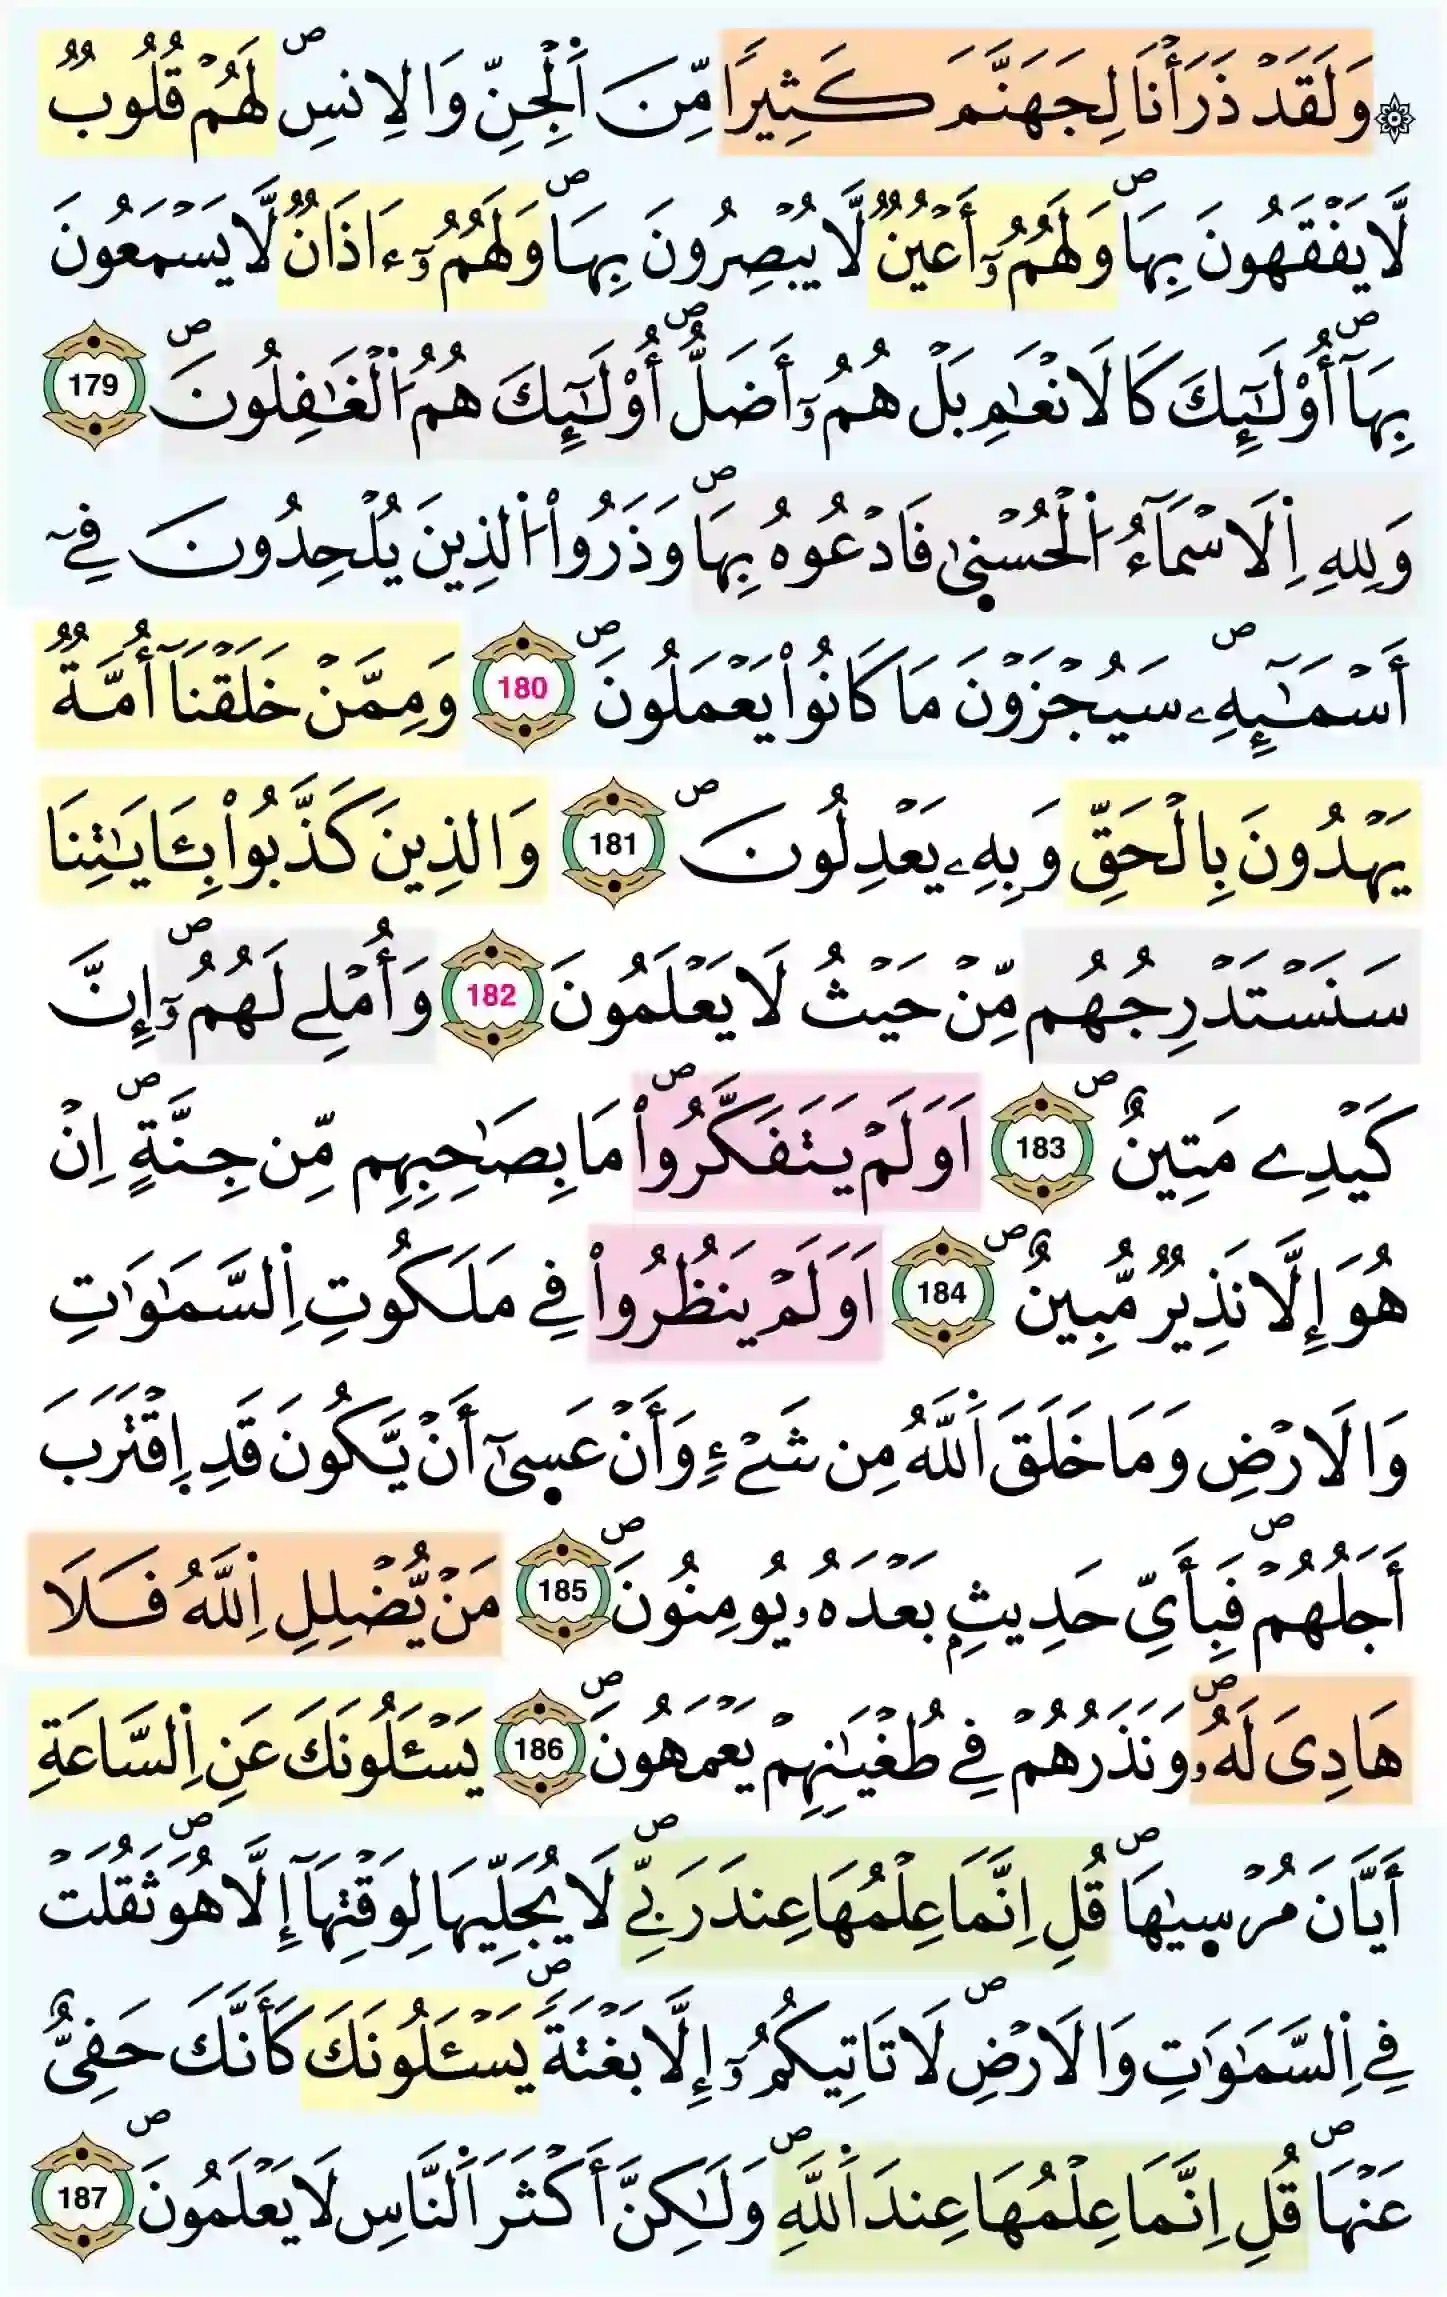 ۞ وَلَقَدْ ذَرَأْنَا لِجَهَنَّمَ كَثِيرًا مِّنَ اَ۬لْجِنِّ وَالِانسِۖ لَهُمْ قُلُوبٞ
لَّا يَفْقَهُونَ بِهَاۖ وَلَهُمُۥٓ أَعْيُنٞ لَّا يُبْصِرُونَ بِهَاۖ وَلَهُمُۥٓ ءَاذَانٞ لَّا يَسْمَعُونَ
بِهَآۖ أُوْلَٰٓئِكَ كَالَانْعَٰمِ بَلْ هُمُۥٓ أَضَلُّۖ أُوْلَٰٓئِكَ هُمُ اُ۬لْغَٰفِلُونَۖ 179
وَلِلهِ اِ۬لَاسْمَآءُ اُ۬لْحُسْن۪يٰ فَادْعُوهُ بِهَاۖ وَذَرُواْ اُ۬لذِينَ يُلْحِدُونَ فِےٓ
أَسْمَٰٓئِهِۦۖ سَيُجْزَوْنَ مَا كَانُواْ يَعْمَلُونَۖ 180 وَمِمَّنْ خَلَقْنَآ أُمَّةٞ
يَهْدُونَ بِالْحَقِّ وَبِهِۦ يَعْدِلُونَۖ 181 وَالذِينَ كَذَّبُواْ بِـَٔايَٰتِنَا
سَنَسْتَدْرِجُهُم مِّنْ حَيْثُ لَا يَعْلَمُونَ 182 وَأُمْلِے لَهُمُۥٓۖ إِنَّ
كَيْدِے مَتِينٌۖ 183 اَوَلَمْ يَتَفَكَّرُواْۖ مَا بِصَٰحِبِهِم مِّن جِنَّةٍۖ اِنْ
هُوَ إِلَّا نَذِيرٞ مُّبِينٌۖ 184 اَوَلَمْ يَنظُرُواْ فِے مَلَكُوتِ اِ۬لسَّمَٰوَٰتِ
وَالَارْضِ وَمَا خَلَقَ اَ۬للَّهُ مِن شَےْءٖ وَأَنْ عَس۪يٰٓ أَنْ يَّكُونَ قَدِ اِ۪قْتَرَبَ
أَجَلُهُمْۖ فَبِأَيِّ حَدِيثِۢ بَعْدَهُۥ يُومِنُونَۖ 185 مَنْ يُّضْلِلِ اِ۬للَّهُ فَلَا
هَادِيَ لَهُۥۖ وَنَذَرُهُمْ فِے طُغْيَٰنِهِمْ يَعْمَهُونَۖ 186 يَسْـَٔلُونَكَ عَنِ اِ۬لسَّاعَةِ
أَيَّانَ مُرْس۪يٰهَاۖ قُلِ اِنَّمَا عِلْمُهَا عِندَ رَبِّےۖ لَا يُجَلِّيهَا لِوَقْتِهَآ إِلَّا هُوَۖ ثَقُلَتْ
فِے اِ۬لسَّمَٰوَٰتِ وَالَارْضِۖ لَا تَاتِيكُمُۥٓ إِلَّا بَغْتَةٗۖ يَسْـَٔلُونَكَ كَأَنَّكَ حَفِيٌّ
عَنْهَاۖ قُلِ اِنَّمَا عِلْمُهَا عِندَ اَ۬للَّهِۖ وَلَٰكِنَّ أَكْثَرَ اَ۬لنَّاسِ لَا يَعْلَمُونَۖ 187